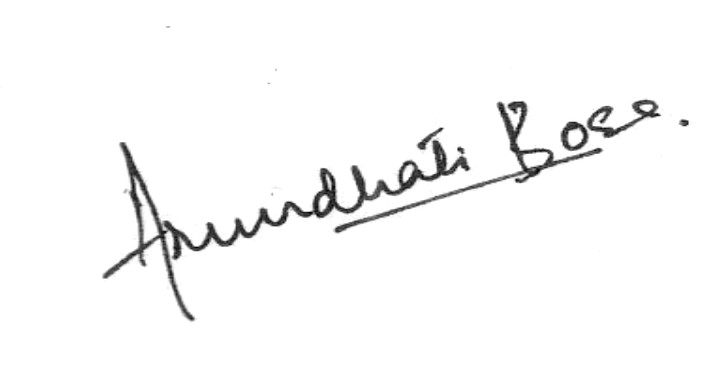 Arundhati Bose.